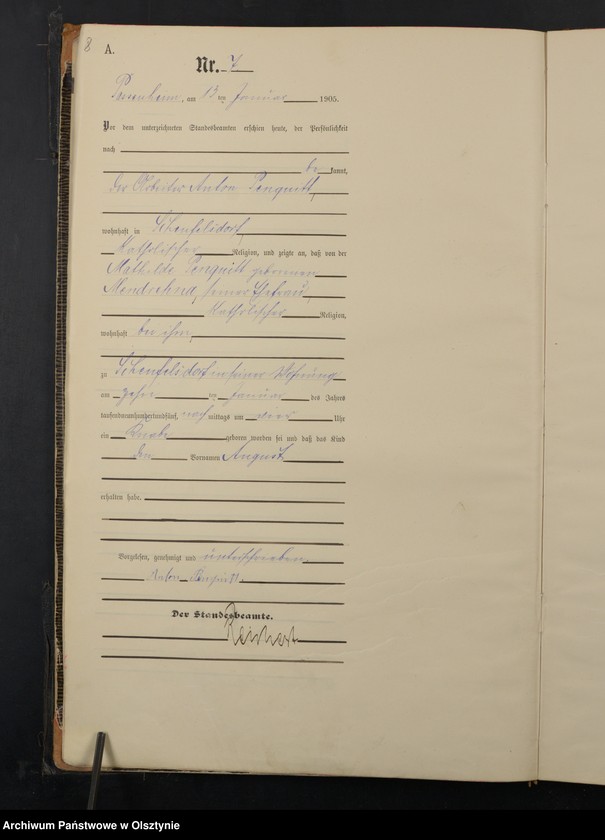 8
A.
Nr. 7
Passenheim, am 13 ten Januar 1905.
Vor dem unterzeichneten Standesbeamten erschien heute, der Persönlichkeit
nach
be kannt,
der Arbeiter Anton Penquitt,
wohnhaft in Schenfelsdorf,
katholischer Religion, und zeigte an, daß von der
Mathilde Penquitt geborenen
seiner Ehefrau,
katholischer Religion,
wohnhaft bei ihm,
zu Schenfelsdorf in seiner Wohnung
am zehn ten Januar des Jahres
tausendneunhundertundfünf, nach mittags um vier Uhr
ein Knabe geboren worden sei und daß das Kind
den Vornamen August
erhalten habe.
Vorgelesen, genehmigt und unterschrieben.
Anton Penquitt.
Der Standesbeamte.
Reichert
Archiwum Państwowe w Olsztynie